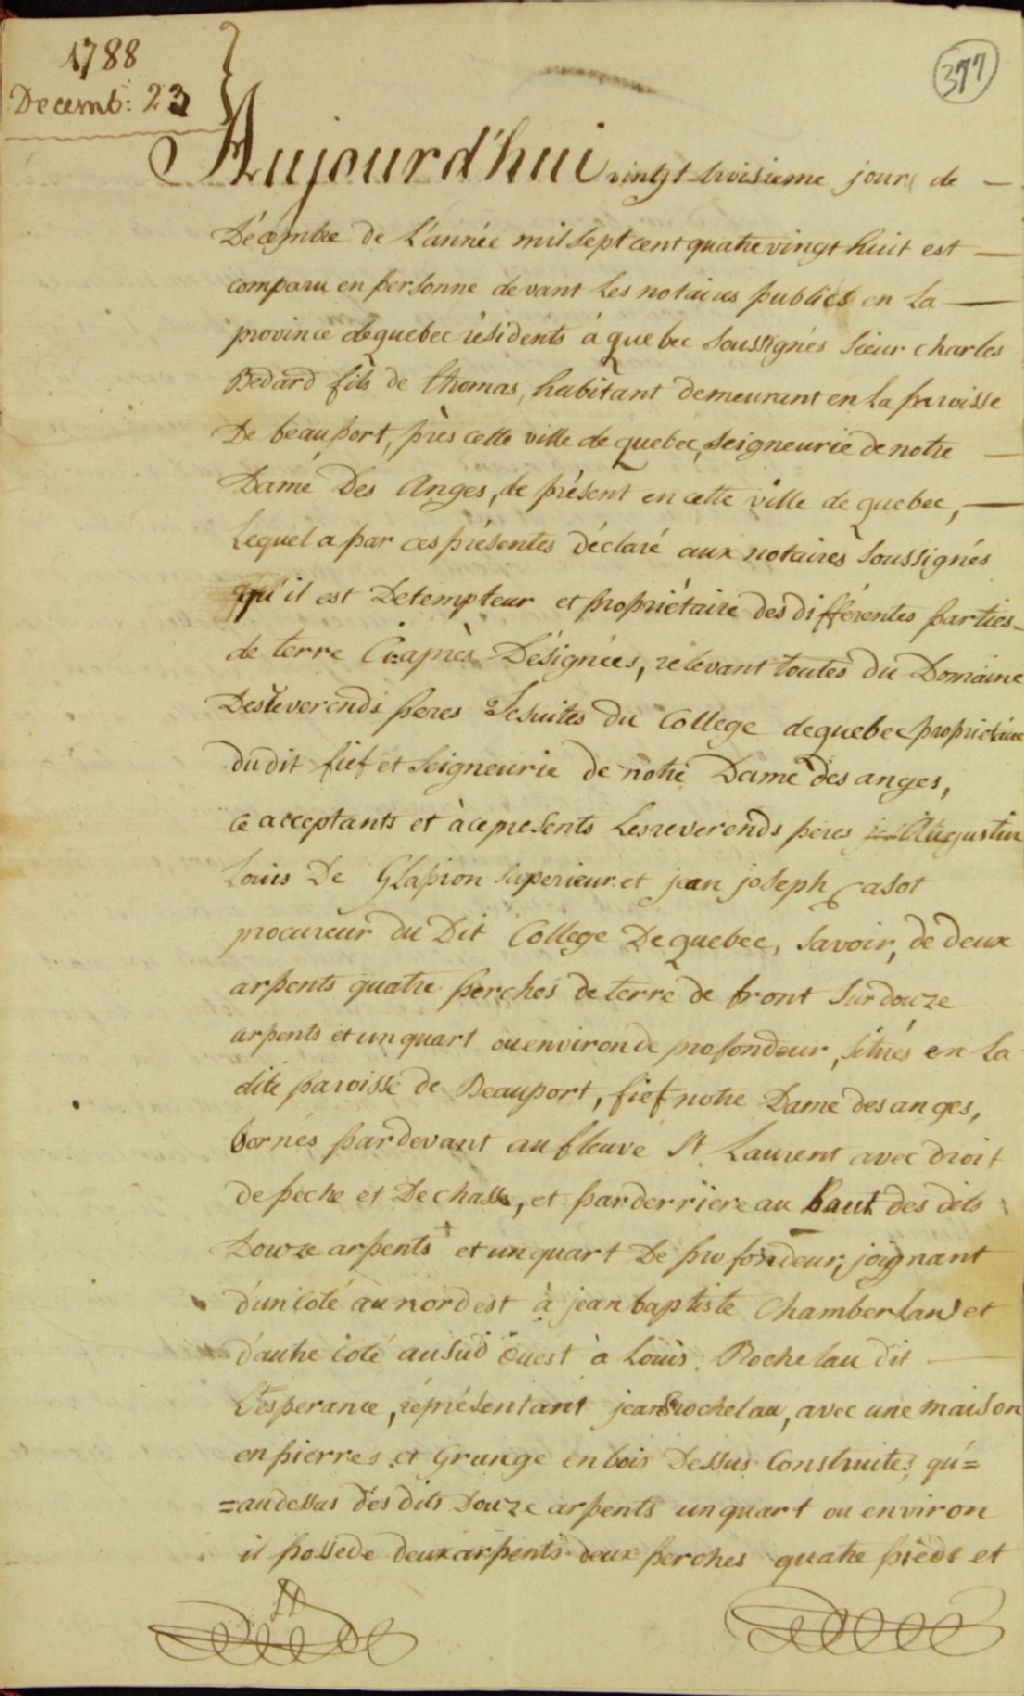 1788
Decemb: 23
377
Aujourd'hui vingt troisieme jour de —
Décembre de L'année mil sept cent quatre vingt huit est —
comparu en personne devant Les notaires publics en La —
province de quebec résidents à quebec soussignés sieur charles
Bedard fils de thomas, habitant demeurant en La paroisse
De beauport, près cette ville de quebec, seigneurie de notre —
Dame Des Anges, de présent en cette ville de quebec, —
Lequel a par ces présentes déclaré aux notaires soussignés
qu'il est Detempteur et propriétaire des différentes parties
de terre Ci-après Désignées, relevant toutes du Domaine
Des Reverends peres Jesuites du College de quebec proprietaire
du dit fief et seigneurie de notre Dame des anges,
ce acceptants et à ce presents Les reverends peres Augustin
Louis De Glapion superieur et jean joseph Casot
procureur du Dit College De quebec, savoir, de deux
arpents quatre perches de terre de front sur douze
arpents et un quart ou environ de profondeur, situés en La
dite paroisse de Beauport, fief notre Dame des anges,
bornés par devant au fleuve St. Laurent avec droit
de peche et De chasse, et par derriere au haut des dits
Douze arpents et un quart De profondeur, joignant
d'un coté au nord est à jean baptiste Chamberland et
d'autre coté au sud ouest à Louis Rochelau dit —
L'esperance, réprésentant jean Rochelau, avec une maison
en pierres et Grange en bois Dessus Construites, qu'=
=au dessus des dits Douze arpents un quart ou environ
il possede deux arpents deux perches quatre pieds et